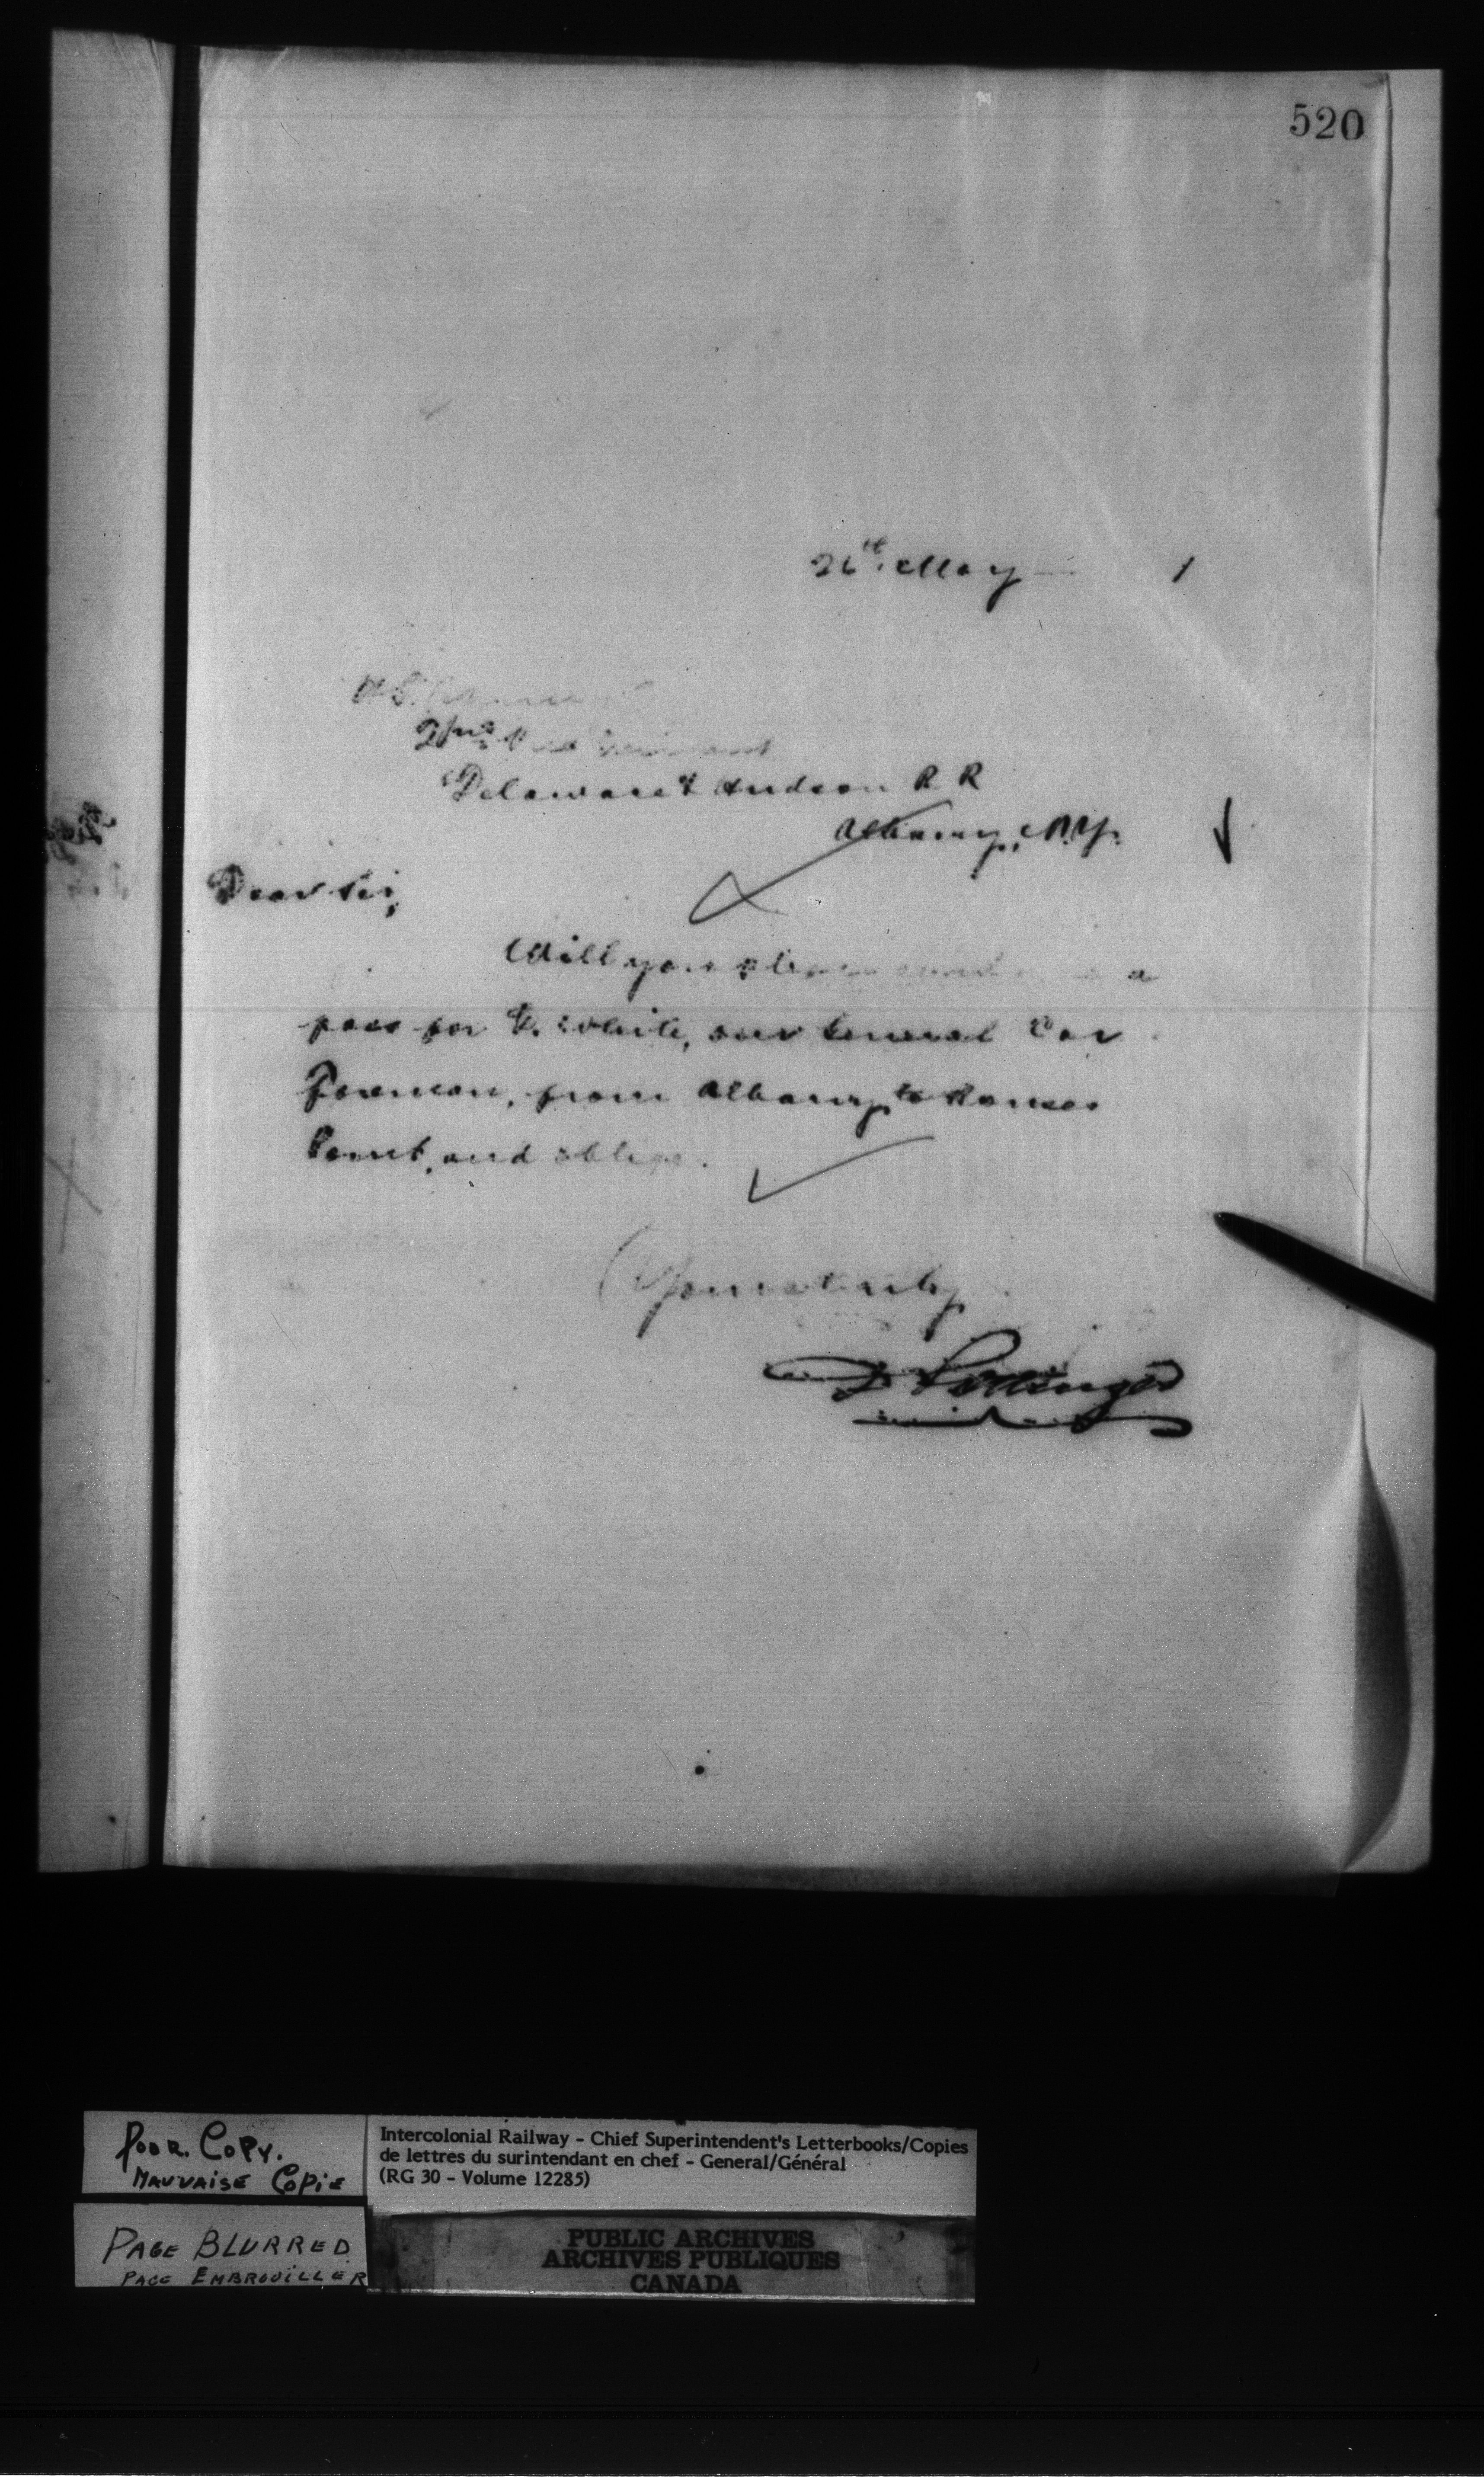 520
26th May 1
2nd
Delaware & Hudson R R
Albany, N.Y.
Dear Sir,
Will you please send a
pass for White, our General Car
Foreman, from Albany to Rouses
Point, and oblige.
Yours truly
D Pottinger
POOR. COPY.
MAUVAISE COPIE
Intercolonial Railway - Chief Superintendent's Letterbooks/Copies
de lettres du surintendant en chef - General/Général
(RG 30 - Volume 12285)
PAGE BLURRED
PAGE EMBROUILLER
PUBLIC ARCHIVES
ARCHIVES PUBLIQUES
CANADA